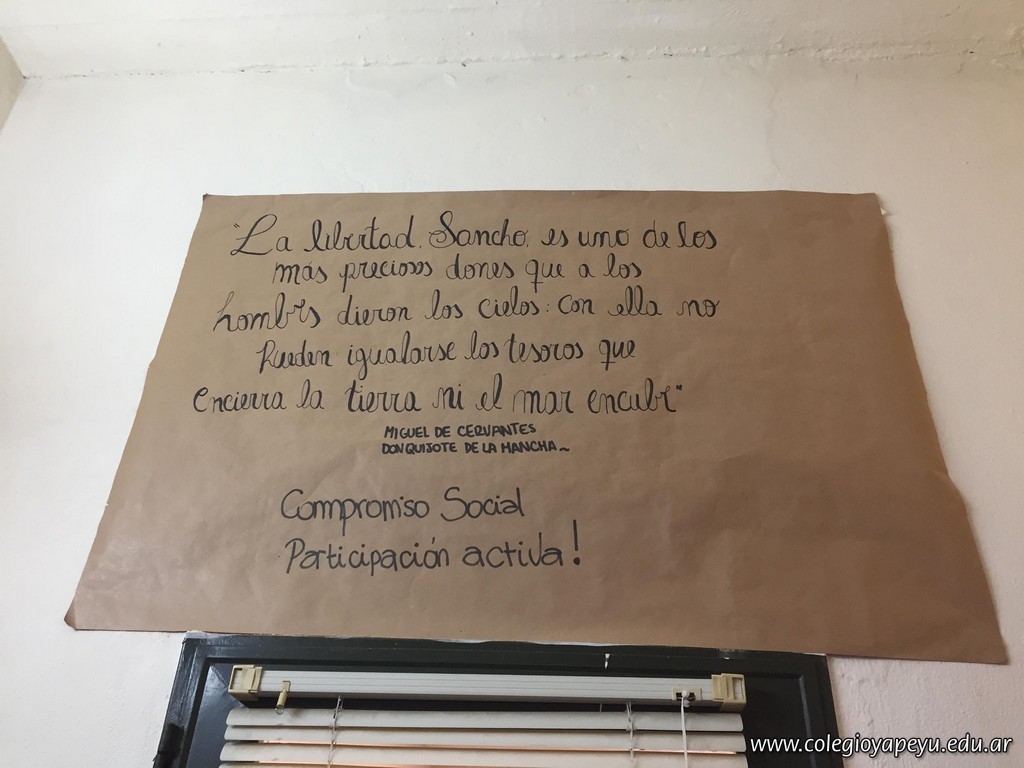 "La libertad, Sancho, es uno de los
más preciosos dones que a los
hombres dieron los cielos: con ella no
pueden igualarse los tesoros que
encierra la tierra ni el mar encubre"
MIGUEL DE CERVANTES
DON QUIJOTE DE LA MANCHA~
Compromiso Social
Participación activa!
www.colegioyapeyu.edu.ar